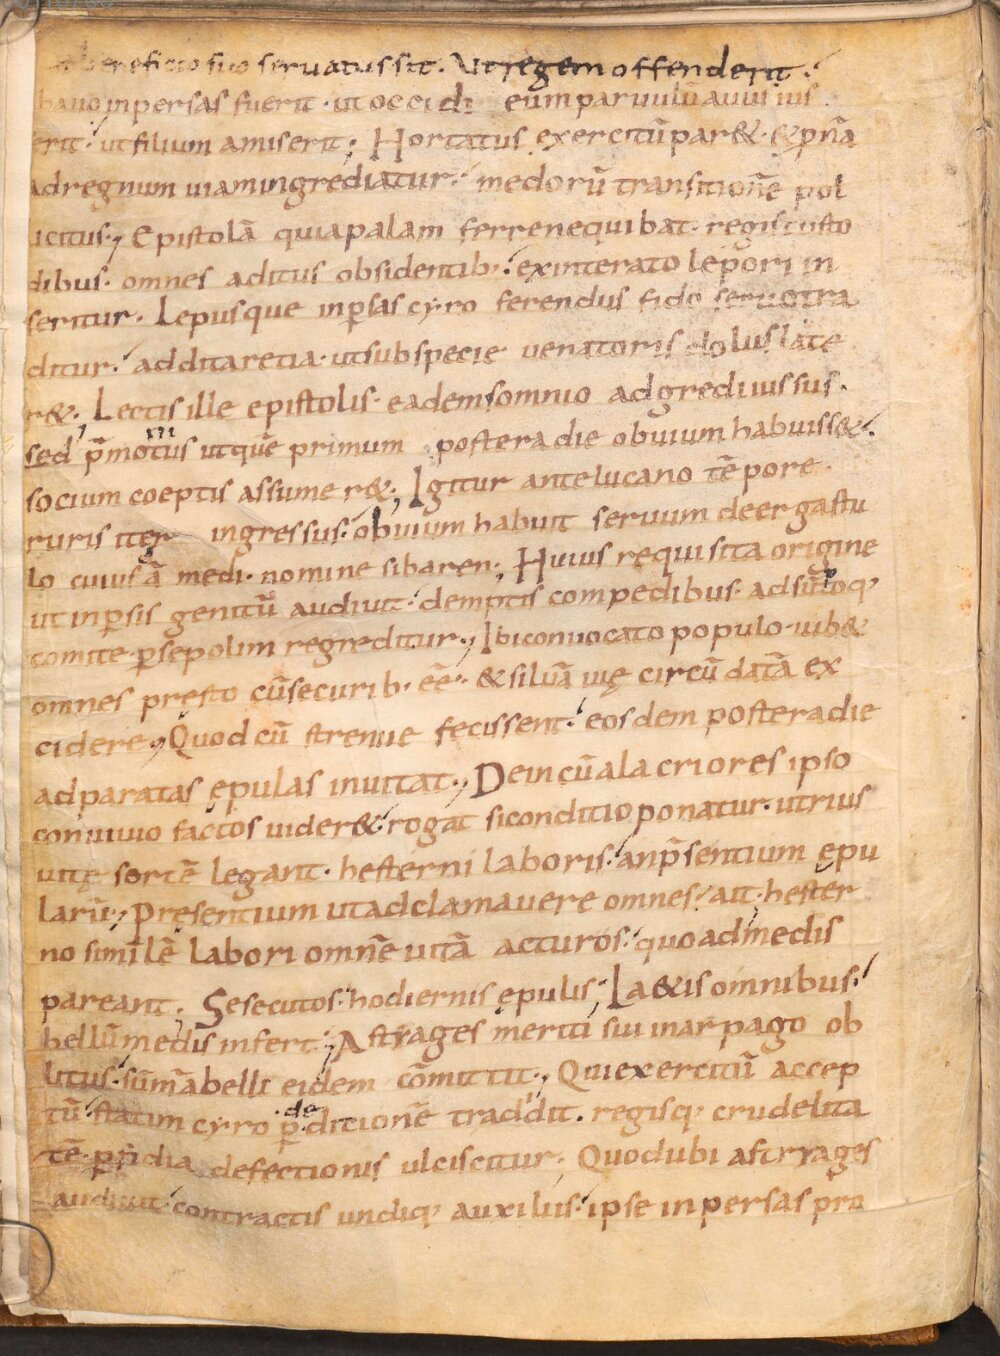 beneficio suo seruatus sit. Ut regem offenderit.
bauo inpersas fuerit. ut occidi eum paruulu auus ius
serit. ut filium amiserit; Hortatus exercitū par& & p̄na
adregnum uiam ingrediatur. medorū transitionē pol
licitus; Epistolā quia palam ferre nequibat. regis custo
dibus. omnes aditus obsidentib; exinterato lepori in
seritur. Lepusque inp̄sas cyro ferendus fido seruo tra
ditur. addita retia. ut sub specie uenatoris dolus late
r&. Lectis ille epistolis. eadem somnio adgredi iussus.
sed p̄monitus ut quē primum postera die obuium habuiss&.
socium coeptis assumer&; Igitur antelucano tēpore.
ruris iter ingressus. obuium habuit seruum de ergastu
lo cuius ā medi. nomine sibaren; Huius requisita origine
ut inp̄sis genitū audiuit. demptis compedibus. adsūptoq;
comite. p̄sepolim regreditur; Ibi conuocato populo. iub&
omnes pręsto cū securib. eē. & siluā uię circū datā ex
cidere; Quod cū strenue fecissent. eosdem postera die
ad paratas ępulas inuitat; Dein cū alacriores ipso
conuiuio factos uider& rogat si conditio ponatur. utrius
uitę sortē legant. hesterni laboris. an p̄sentium ępu
larū; Pręsentium ut adclamauere omnes. ait. hester
no similē labori omnē uitā acturos. quoad medis
pareant. Se secutos. hodiernis ępulis; La&is omnibus.
bellū medis infert; Astyages meriti sui in arpago ob
litus. sūmā belli eidem cōmittit; Qui exercitū accep
tū. statim cyro p̄ deditionē tradidit. regisq; crudelita
tē. p̄fidia defectionis ulciscitur; Quod ubi astryages
audiuit. contractis undiq; auxiliis. ipse inpersas pro